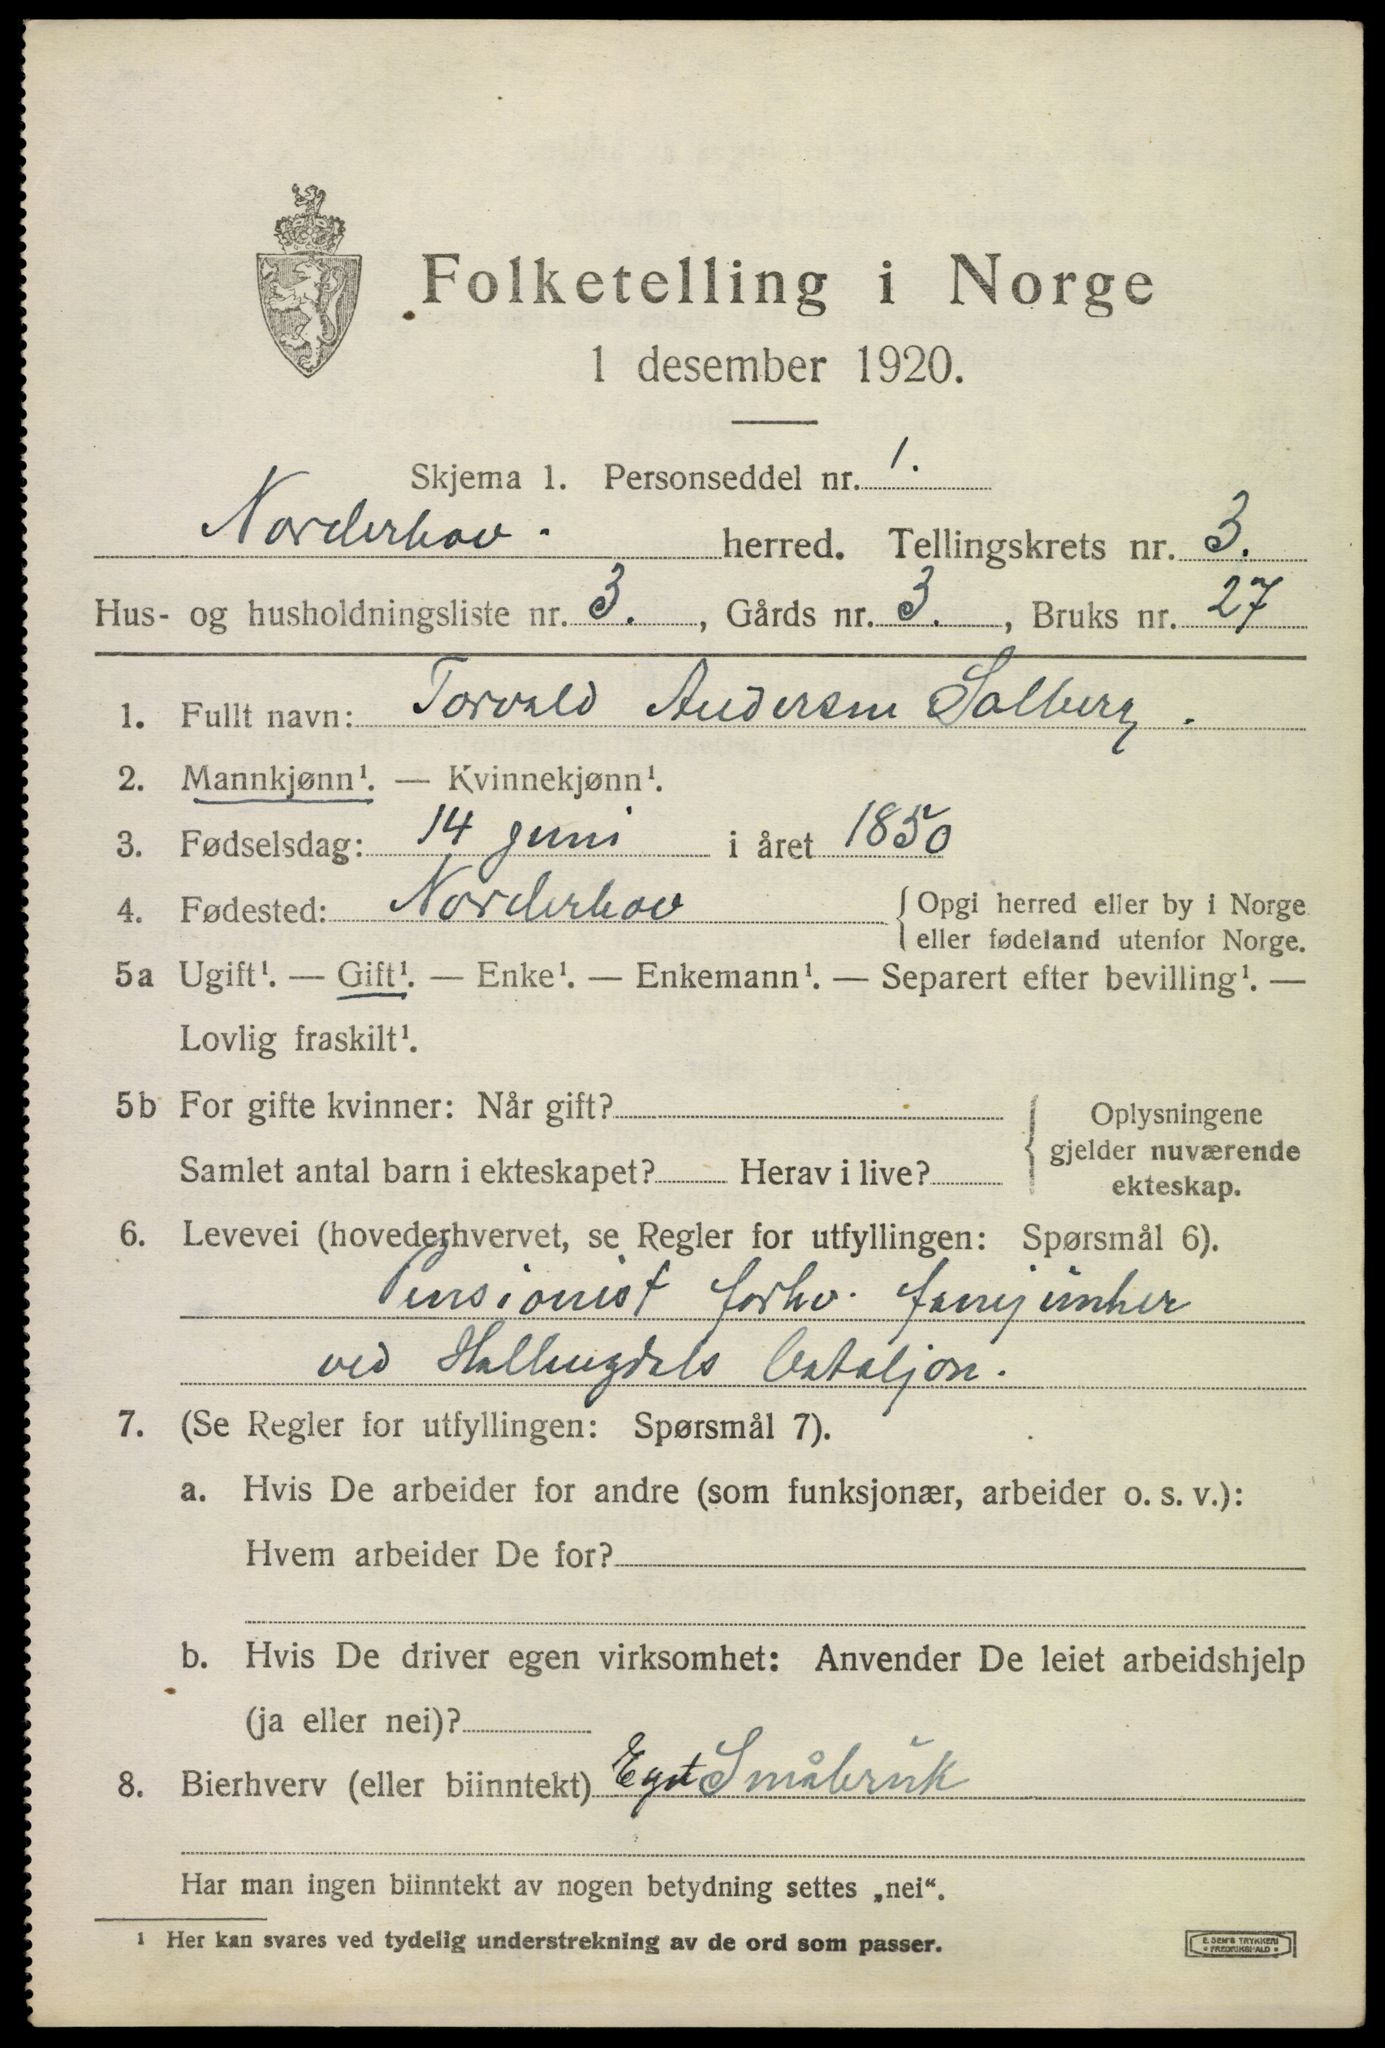 Folketelling i Norge
1 desember 1920.
Skjema 1. Personseddel nr. 1.
Norderhov. herred. Tellingskrets nr. 3.
Hus- og husholdningsliste nr. 3. , Gårds nr. 3. , Bruks nr. 27
1. Fullt navn: Torvald Andersen Solberg.
2. Mannkjønn¹. — Kvinnekjønn¹.
3. Fødselsdag: 14 juni i året 1850
4. Fødested: Norderhov { Opgi herred eller by i Norge
eller fødeland utenfor Norge.
5a Ugift¹. — Gift¹. — Enke¹. — Enkemann¹. — Separert efter bevilling¹. —
Lovlig fraskilt¹.
5b For gifte kvinner: Når gift?
Samlet antal barn i ekteskapet? Herav i live?
{ Oplysningene
gjelder nuværende
ekteskap.
6. Levevei (hovederhvervet, se Regler for utfyllingen: Spørsmål 6).
Pensionist forhv. fanejunker
ved Hallingdals Bataljon.
7. (Se Regler for utfyllingen: Spørsmål 7).
a. Hvis De arbeider for andre (som funksjonær, arbeider o. s. v.):
Hvem arbeider De for?
b. Hvis De driver egen virksomhet: Anvender De leiet arbeidshjelp
(ja eller nei)?
8. Bierhverv (eller biinntekt) Eget Småbruk
Har man ingen biinntekt av nogen betydning settes „nei“.
¹ Her kan svares ved tydelig understrekning av de ord som passer.
E. SEM'S TRYKKERI
• FREDRIKSHALD •